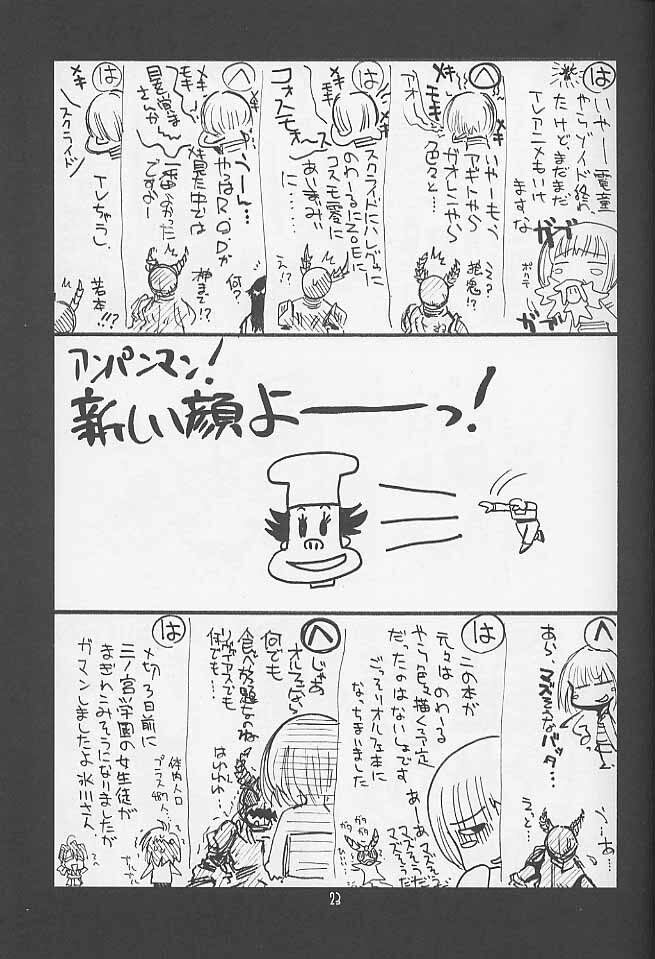 は
いやー電童
やらゾイド終わ
たけど、まだまだ
TVアニメもいけ
ますな
ガブ
ガブ
へ
メキ
モキ
アオ
いやーもう
アギトやら
ガオレンやら
色々と…
え?
は
メキ
コォスモォ〜ス
スクライドにハレグゥに
のわーるにZ.O.Eに
コスモ愛に
あいまみい
に・・・・
え!?
へ
メキ
う〜ん…
やっぱR.O.Dが
見た中では
一番よかった
ですよー
神まで!?
何?
は
メキ
スクライド
TVちゃうし
若本!?
アンパンマン!
新しい顔よーーっ!
へ
あら、マズそうなバッタ…
う…あ。
えっと…
は
この本が
元々はのわーる
やら色々描く予定
だったのはないしょです
ごっそりオルフェ本に
なっちまいました
あーあ
マズそうだ
マズそうだ
へ
じゃあ
オルフェなら
何でも
食べ放題なのね
リヴァイアスでも
何でも…
はわわわ
は
〆切3日前に
三ノ宮学園の女生徒が
まぎれこみそうになりましたが
ガマンしましたよ氷川さん
体内人口
プラス487人…
23